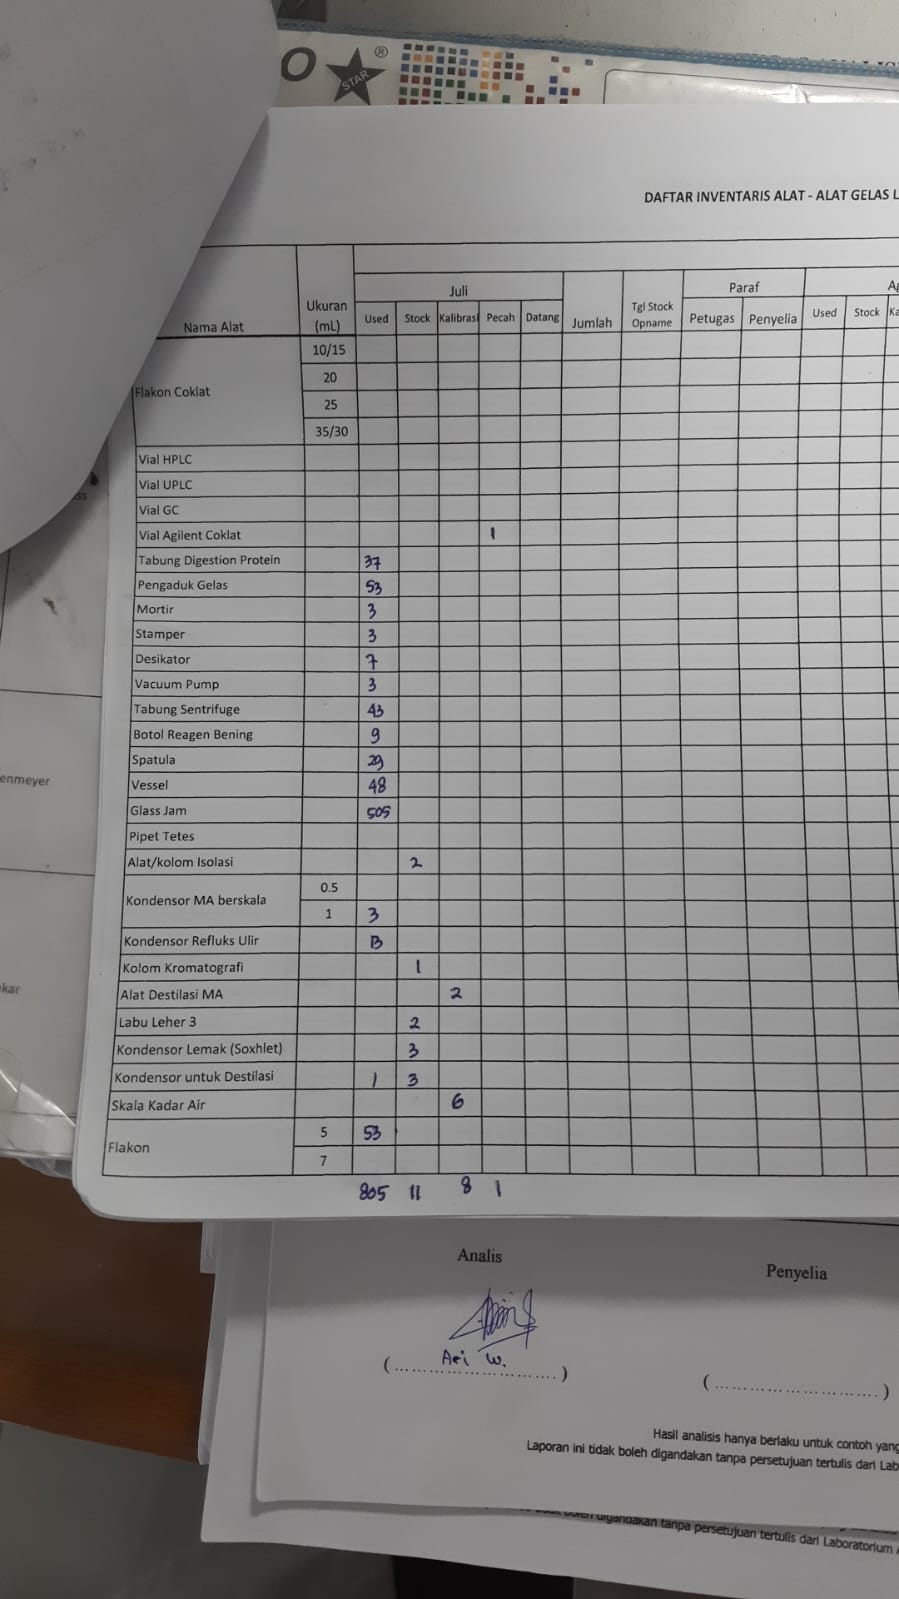 O ®
STAR
DAFTAR INVENTARIS ALAT - ALAT GELAS L
Nama Alat Ukuran (mL) Juli Jumlah Tgl Stock Opname Paraf Ag
Used Stock Kalibrasi Pecah Datang Petugas Penyelia Used Stock Ka
Flakon Coklat
10/15
20
25
35/30
Vial HPLC
Vial UPLC
Vial GC
Vial Agilent Coklat 1
Tabung Digestion Protein 37
Pengaduk Gelas 53
Mortir 3
Stamper 3
Desikator 7
Vacuum Pump 3
Tabung Sentrifuge 43
Botol Reagen Bening 9
Spatula 29
Vessel 48
Glass Jam 505
Pipet Tetes
Alat/kolom Isolasi 2
Kondensor MA berskala 0.5
1 3
Kondensor Refluks Ulir
Kolom Kromatografi 1
Alat Destilasi MA 2
Labu Leher 3 2
Kondensor Lemak (Soxhlet) 3
Kondensor untuk Destilasi 1 3
Skala Kadar Air 6
Flakon 5 53
7
805 11 8 1
enmeyer
kar
Analis Penyelia
Ari W.
(..............................) (..............................)
Hasil analisis hanya berlaku untuk contoh yang
Laporan ini tidak boleh digandakan tanpa persetujuan tertulis dari Lab
boleh digandakan tanpa persetujuan tertulis dari Laboratorium A